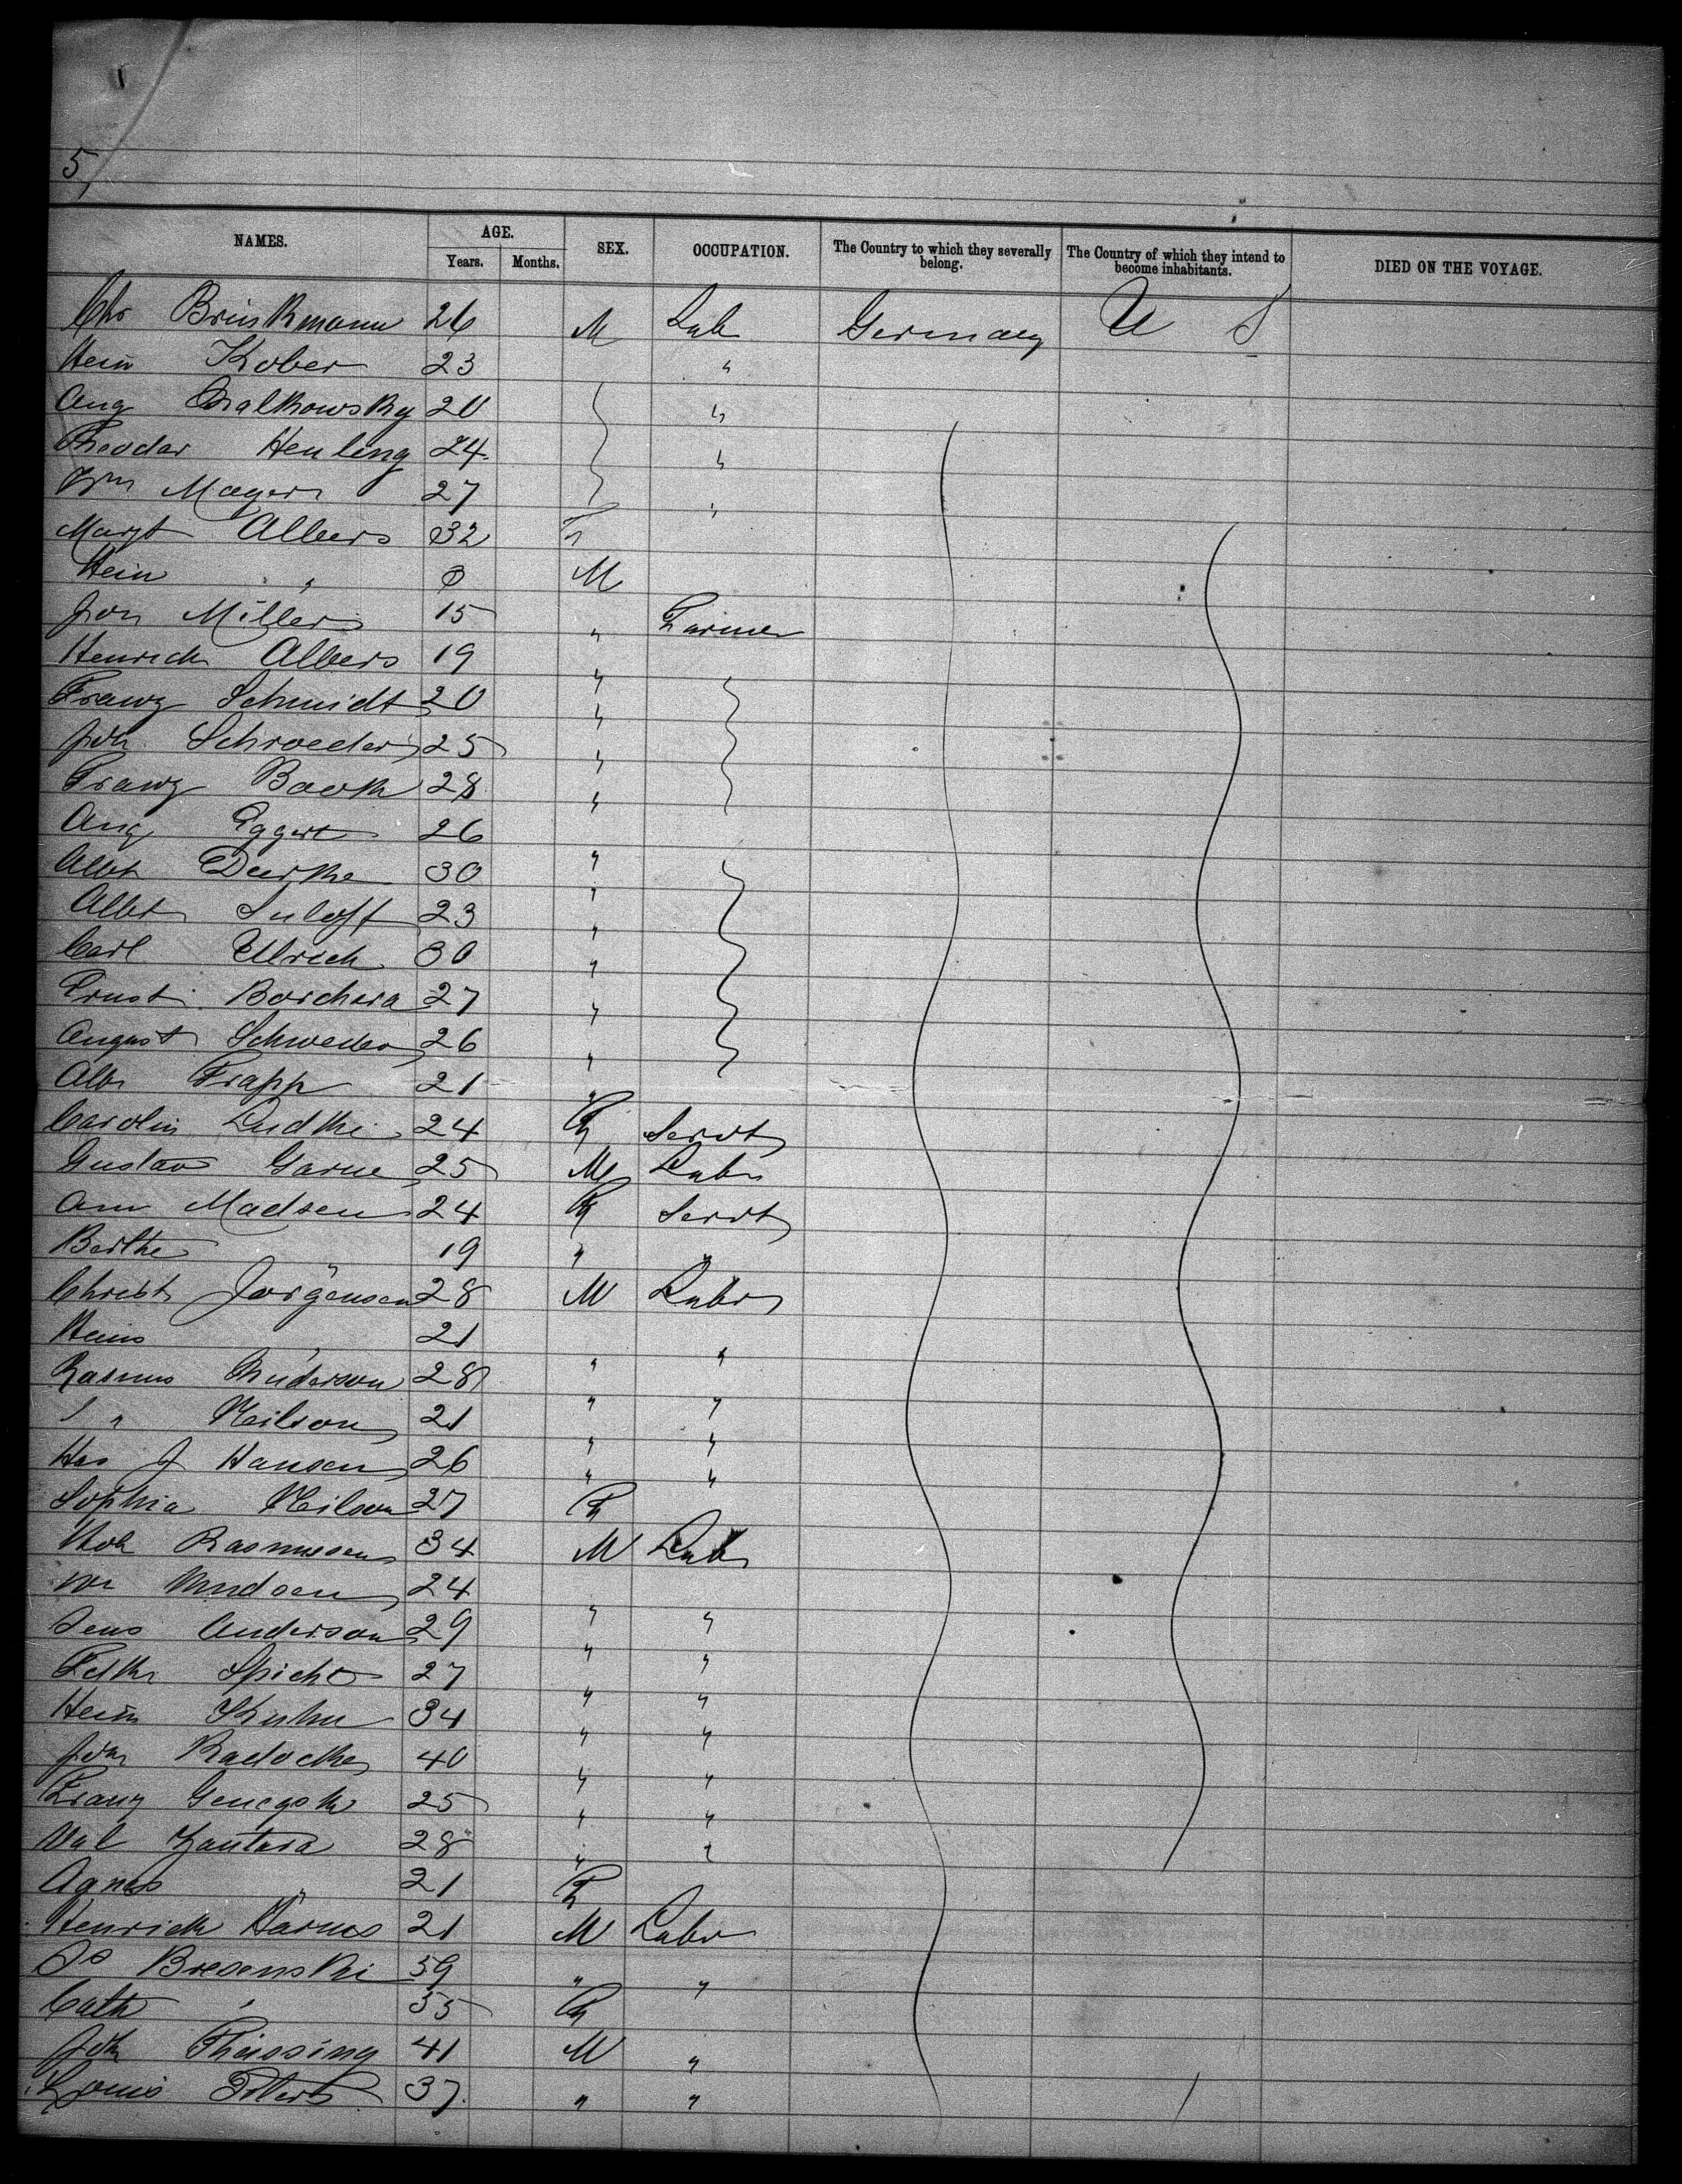 5,
NAMES. AGE. SEX. OCCUPATION. The Country to which they severally belong. The Country of which they intend to become inhabitants. DIED ON THE VOYAGE.
Years. Months.
Chr Brinkmann 26 M Lab Germany U S
Hein Kober 23 "
Aug 20 "
Theodor Henling 24 "
Wm Mayer 27 "
Margt Albers 32 F
Hein " M
Joh Miller 15 " Farmer
Henrich Albers 19 "
Franz Schmidt 20 "
Joh Schroeder 25 "
Franz Book 28 "
Aug Eggert 26 "
Albt Duerke 30 "
Albt Suloff 23 "
Carl Ulrich 30 "
Ernst Borchera 27 "
August Schweder 26 "
Alb Trapp 21 "
Carolin Ludki 24 F Servt
Gustav Garne 25 M Labr
Ann Madsen 24 F Servt
Berthe " 19 " "
Christ Jorgensen 28 M Labr
Hans " 21 " "
Rasmus Anderson 28 " "
" Neilson 21 " "
Has J Hansen 26 " "
Sophia Neilson 27 F
Rasmussen 34 M Labr
Knudsen 24 " "
Jens Anderson 29 " "
Spicht 27 " "
Hein Kuhn 34 " "
Joh Radoche 40 " "
Franz 25 " "
Val Zantara 28 " "
Agnes " 21 F
Henrich Harms 21 M Labr
Jo Bresenski 59 " "
Cath " 55 F
Joh Thiessing 41 M "
Louis Peters 37. " "